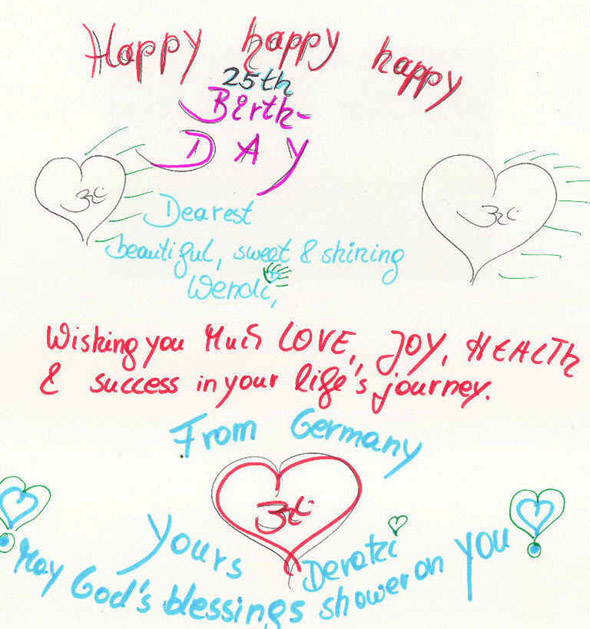 Happy happy happy
25th
Birth-
DAY
Dearest
beautiful, sweet & shining
Wendi,
Wishing you Much LOVE, JOY, HEALTh
& success in your life's journey.
From Germany
Yours
May God's blessings shower on you